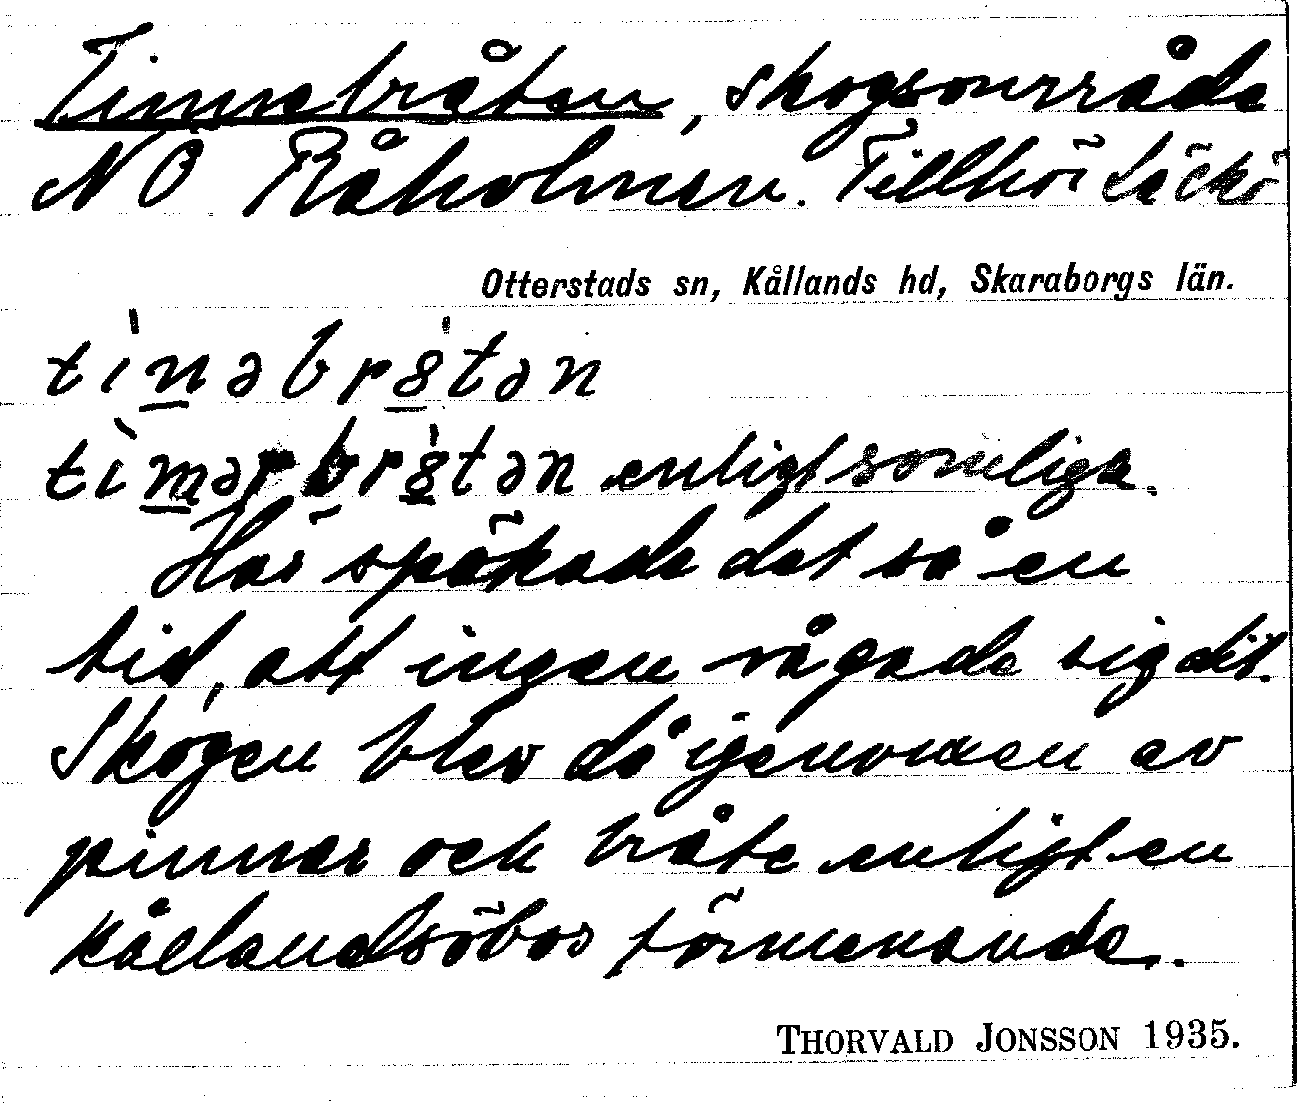 Tinnebråten, skogsområde
NÖ Råholmen. Tillhör Läckö
Otterstads sn, Kållands hd, Skaraborgs län.
tinəbr8tən
timərbr8tən enligt somliga.
Här spökade det så en
tid, att ingen vågade sig dit.
Skogen blev då igenvuxen av
pinnar och bråte enligt en
kållandsöbos förmenande.
THORVALD JONSSON 1935.